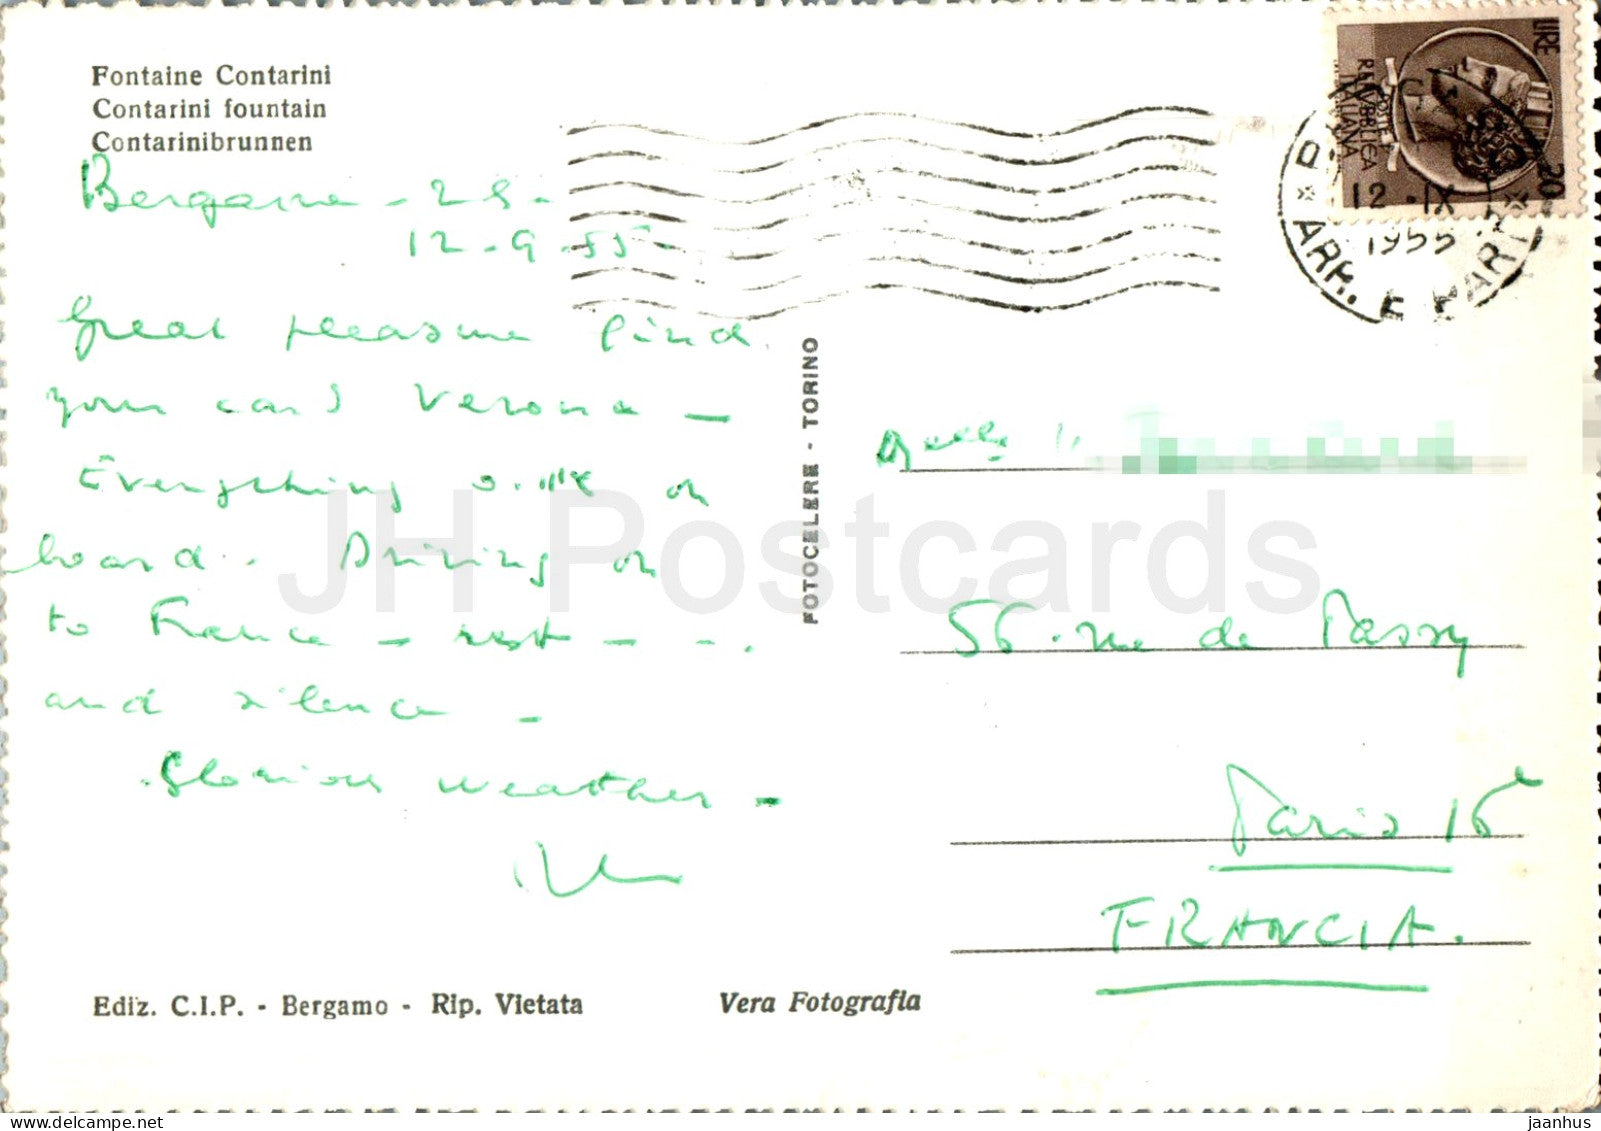 Fontaine Contarini
Contarini fountain
Contarinibrunnen
12-9-55-
Great pleasure find
your card Verona -
Everything O.K. on
board. Driving on
to France - rest - - .
and silence -
Glorious weather -
Ediz. C.I.P. - Bergamo - Rip. Vietata
Vera Fotografia
FOTOCELERE - TORINO
LIRE 20
REPUBBLICA ITALIANA
POSTE
12 . IX
1955
ARR. E PAR
56. rue de Passy
Paris 16e
FRANCIA.
JH Postcards
jaanhus